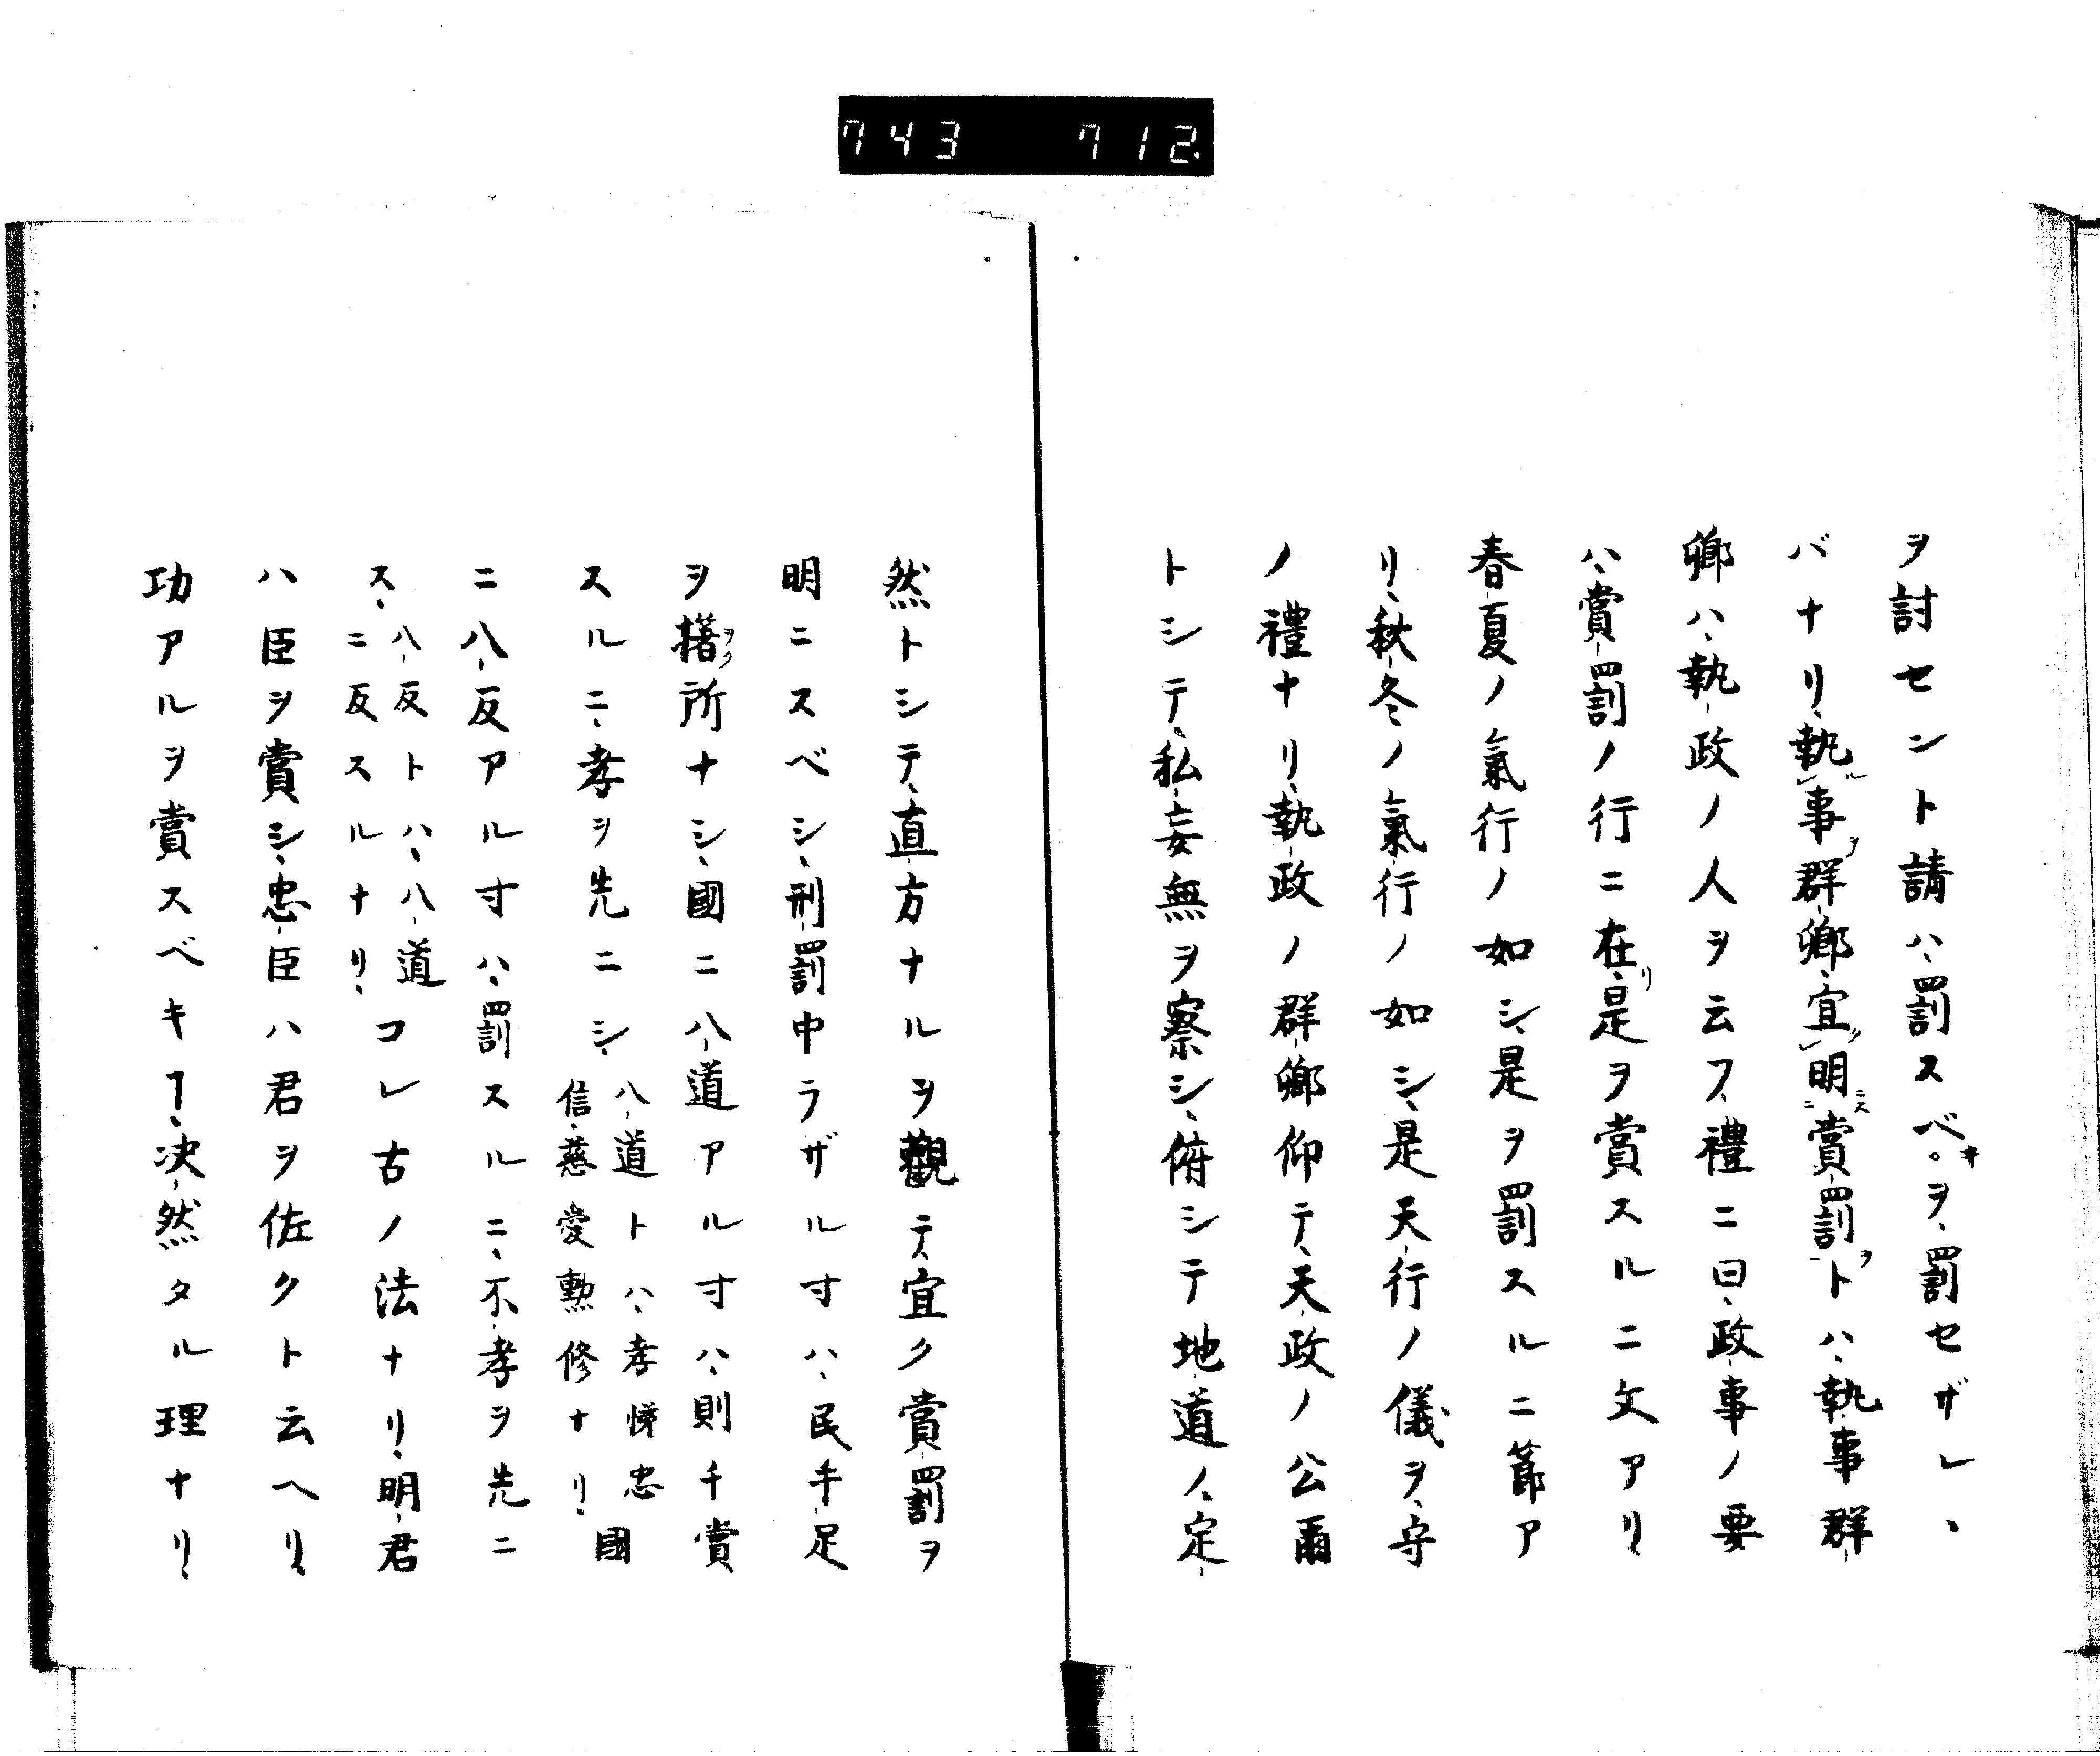 743 712.
ヲ討セント請ハ、罰スベ。キヲ、罰セザレヽ
バナリ、執ルレ事ヲ群卿、宜シクレ明ニス二賞罰ヲ一トハ、執事群
卿ハ、執政ノ人ヲ云フ、禮ニ曰、政事ノ要
ハ、賞罰ノ行ニ在リ、是ヲ賞スルニ文アリ、
春夏ノ氣行ノ如シ、是ヲ罰スルニ節ア
リ、秋冬ノ氣行ノ如シ、是天行ノ儀ヲ、守
ノ禮ナリ、執政ノ群卿仰テ、天政ノ公爾
トシテ、私妄無ヲ察シ、俯シテ地道ノ、定
然トシテ、直方ナルヲ觀テ、宜ク賞罰ヲ
明ニスベシ、刑罰中ラザル寸ハ、民手足
ヲ措ヲク所ナシ、國ニ八道アル寸ハ、則千賞
スルニ、孝ヲ先ニシ、八道トハ、孝悌忠信、慈愛勲修ナリ、國
ニ八反アル寸ハ、罰スルニ、不孝ヲ先ニ
ス、八反トハ、八道ニ反スルナリ、コレ古ノ法ナリ、明君
ハ臣ヲ賞シ、忠臣ハ君ヲ佐クト云ヘリ、
功アルヲ賞スベキヿ、決然タル理ナリ、